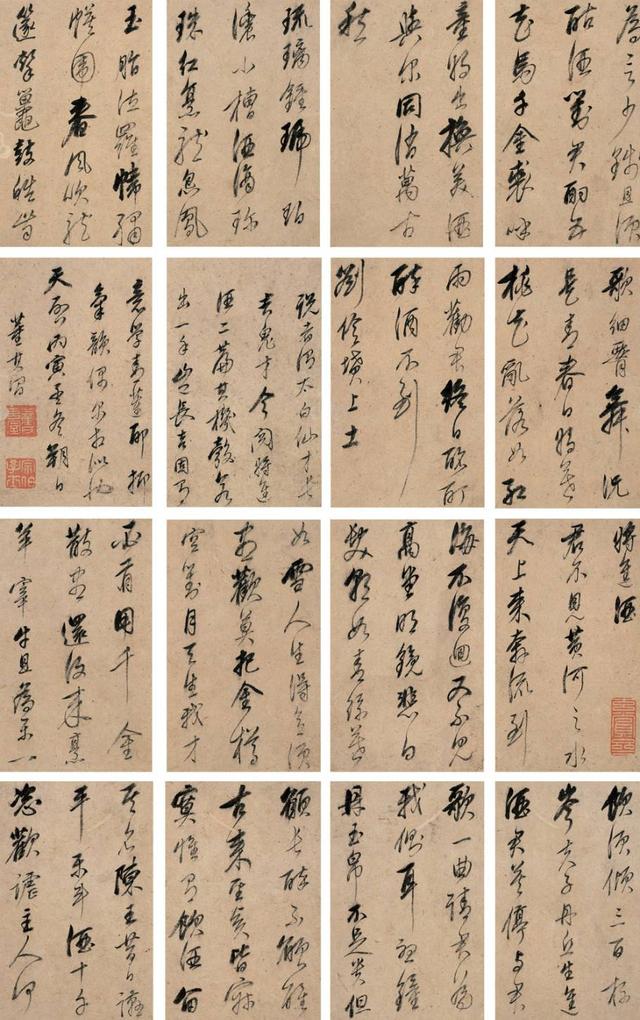 將進酒
君不見黃河之水
天上來奔流到
海不復迴又不見
高堂明鏡悲白
髮朝如青絲暮
如雪人生得意須
盡歡莫把金樽
空對月天生我才
必有用千金
散盡還復來烹
羊宰牛且為樂一
飲須傾三百杯
岑夫子丹丘生進
酒君莫停與君
歌一曲請君為
我側耳聽鐘
鼎玉帛不足貴但
願長醉不願醒
古來聖賢皆寂
寞惟有飲酒留
其名陳王昔日讌
平樂斗酒十千
恣歡謔主人何
為言少錢且須
酤酒對君酌五
花馬千金裘呼
童將出換美酒
與尔同消萬古
愁
琉璃鍾琥珀
濃小槽酒滴珍
珠紅烹龍炰鳳
玉脂泣羅幃繡
幙圍春風吹龍
篴擊鼉鼓皓齒
歌細腰舞況
是青春日將暮
桃花亂落如紅
雨勸君終日酩酊
醉酒不到
劉伶墳上土
說者謂太白仙才長
吉鬼才今閱將進
酒二篇其機軸若
出一手豈長吉固有
意學青蓮耶抑
氣韻偶尔相似也
天啟丙寅孟冬朔日
董其昌